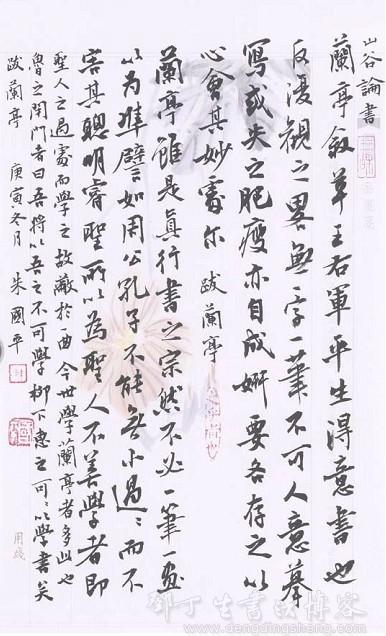 山谷論書
蘭亭叙草王右軍平生淂意書也
反復觀之畧無一字一筆不可人意摹
寫或失之肥瘦亦自成妍要各存之以
心會其妙處尔 跋蘭亭
蘭亭雖是真行書之宗然不必一筆一畫
以為準譬如周公孔子不能無小過〻而不
害其聰明睿聖所以為聖人不善學者即
聖人之過處而學之故蔽於一曲今世學蘭亭者多此也
魯之閉門者曰吾將以吾之不可學柳下惠之可〻以學書矣
跋蘭亭 庚寅冬月 朱國平
用箋
鄧丁生書法博客
www.dengdingsheng.com